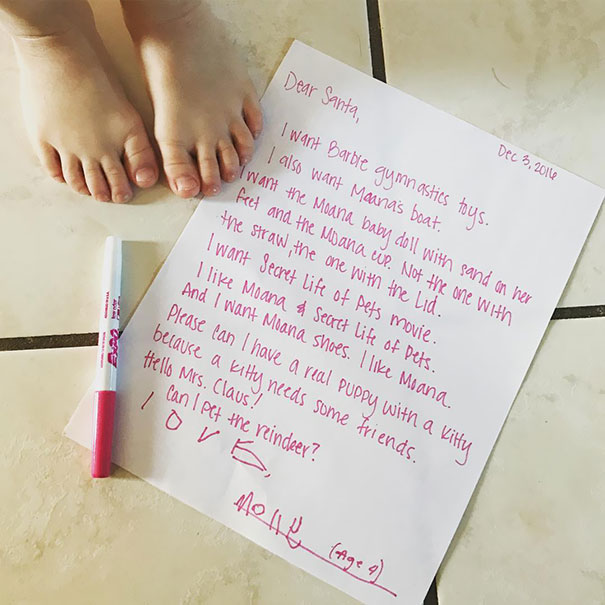 Dec 3, 2016
Dear Santa,
I want Barbie gymnastics toys.
I also want Moana's boat.
I want the Moana baby doll with sand on her
feet and the Moana cup. Not the one with
the straw, the one with the Lid.
I want Secret Life of Pets movie.
I like Moana & Secret Life of Pets.
And I want Moana shoes. I like Moana.
Please can I have a real puppy with a kitty
because a kitty needs some friends.
Hello Mrs. Claus!
Can I pet the reindeer?
LOVE,
Molly
(Age 4)
EXPO